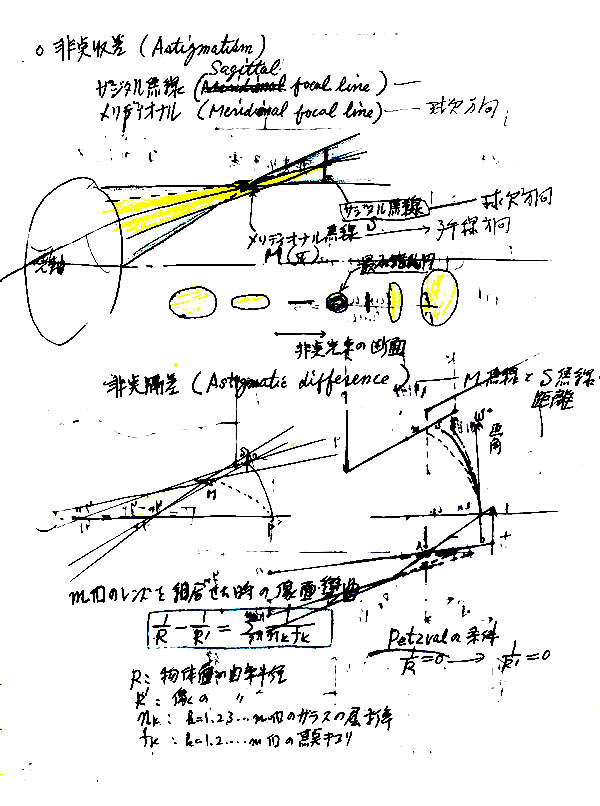 ○ 非点収差 (Astigmatism)
Sagittal
サジタル焦線 (Meridional focal line) —
メリディオナル (Meridional focal line) — 球欠方向
サジタル焦線 — 球欠方向
メリディオナル焦線 → 子午線方向
光軸
最小錯乱円
非点光束の断面
非点隔差 (Astigmatic difference)
M焦線とS焦線
距離
画角
m個のレンズを組合せた時の像面弯曲
1/R - 1/R' = Σ 1/(nk fk)
Petzvalの条件
1/R = 0 → 1/R' = 0
R: 物体面の曲率半径
R': 像の 〃
nk: k=1.2.3…m個のガラスの屈折率
fk: k=1.2.…m個の焦点キョリ